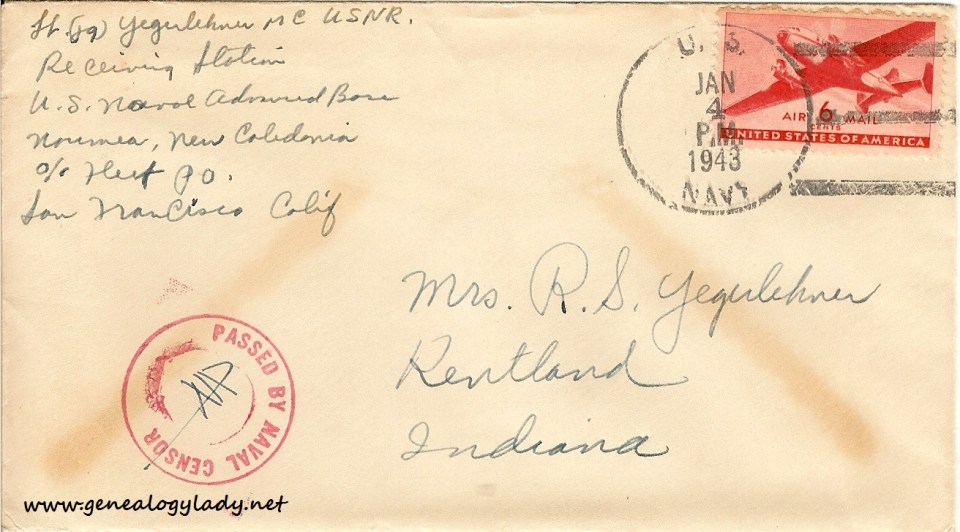 Lt. (jg) Yegerlehner MC USNR.
Receiving Station
U.S. Naval Advanced Base
Noumea, New Caledonia
c/o Fleet PO.
San Francisco Calif
U. S.
JAN
4
P.M.
1943
NAVY
AIR 6 MAIL
CENTS
UNITED STATES OF AMERICA
Mrs. R. S. Yegerlehner
Rentland
Indiana
PASSED BY NAVAL CENSOR
www.genealogylady.net